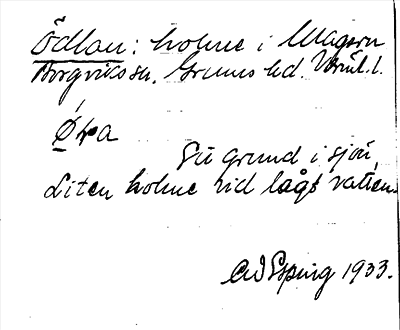 Ödlan: holme i Magern
Borgviks sn. Grums hd. Värml. l.
En grund i sjön,
Liten holme vid lågt vatten.
1933.